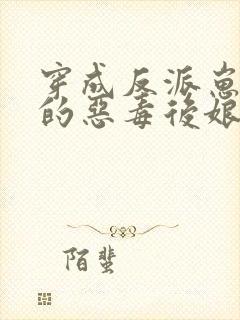 穿成反派崽
的惡毒後娘
陌蜚